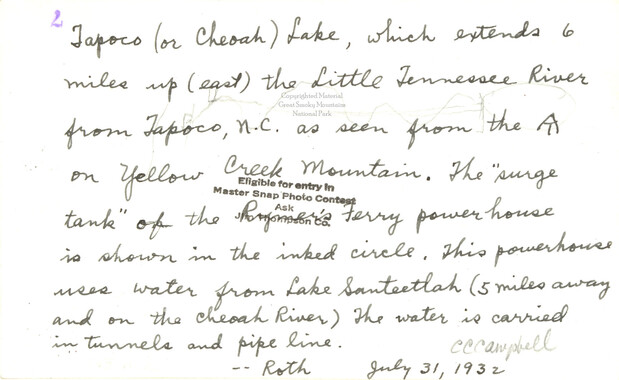 2
Tapoco (or Cheoah) Lake, which extends 6
miles up (east) the Little Tennessee River
Copyrighted Material
Great Smoky Mountains
National Park
from Tapoco, N.C. as seen from the
on Yellow Creek Mountain. The "surge
Eligible for entry in
Master Snap Photo Contest
Ask
Thompson Co.
tank" of the Rymer's Ferry powerhouse
is shown in the inked circle. This powerhouse
uses water from Lake Santeetlah (5 miles away
and on the Cheoah River) The water is carried
in tunnels and pipe line.
CCCampbell
-- Roth July 31, 1932